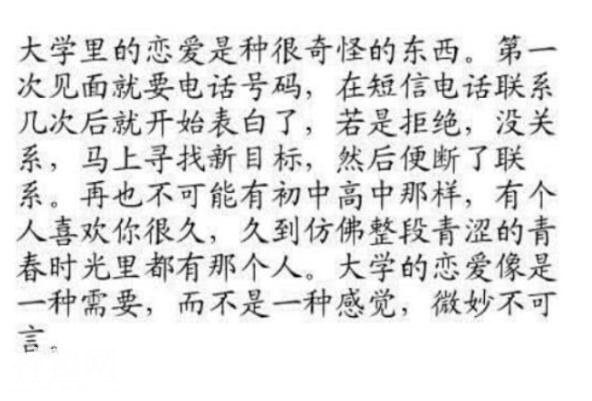 大学里的恋爱是种很奇怪的东西。第一
次见面就要电话号码，在短信电话联系
几次后就开始表白了，若是拒绝，没关
系，马上寻找新目标，然后便断了联
系。再也不可能有初中高中那样，有个
人喜欢你很久，久到仿佛整段青涩的青
春时光里都有那个人。大学的恋爱像是
一种需要，而不是一种感觉，微妙不可
言。